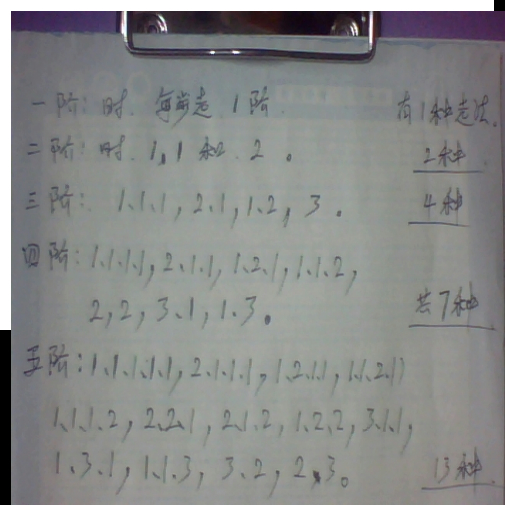 一阶:时.每步走1阶. 有1种走法.
二阶:时.1,1和2。 2种.
三阶:1.1.1,2.1,1.2,3. 4种
四阶:1.1.1.1,2.1.1,1.2.1,1.1.2,
2,2,3.1,1.3。 共7种
五阶:1.1.1.1.1,2.1.1.1,1.2.1.1,1.1.2.1)
1.1.1.2,2.2.1,2.1.2,1.2.2,3.1.1,
1.3.1,1.1.3,3.2,2.3。 13种